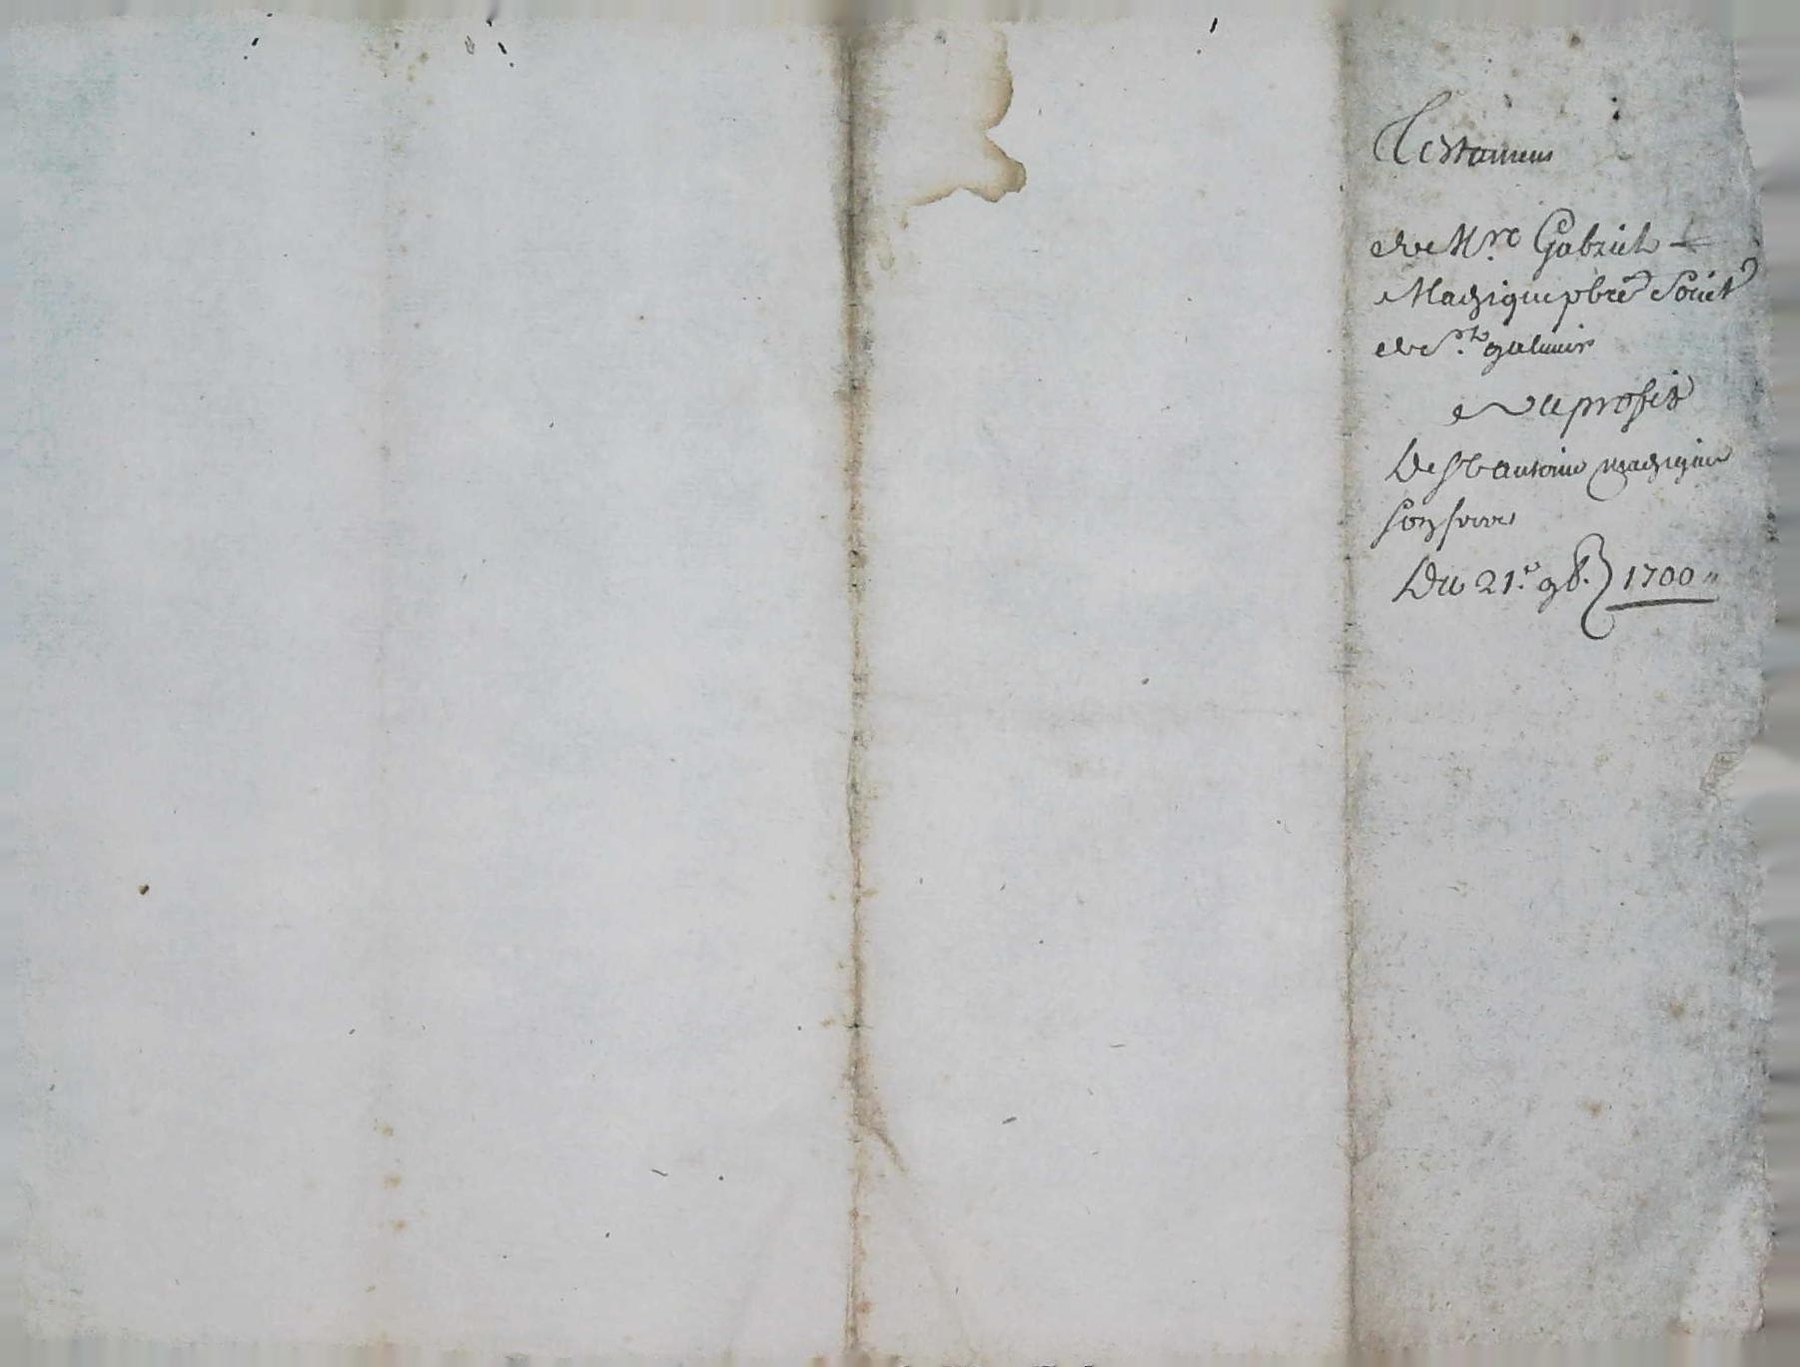 Testament
de M.re Gabriel
Mazigue pbre Societ
de S.t galmier
au profit
De Sr antoine mazigue
son frere
Du 21.e 9b. 1700